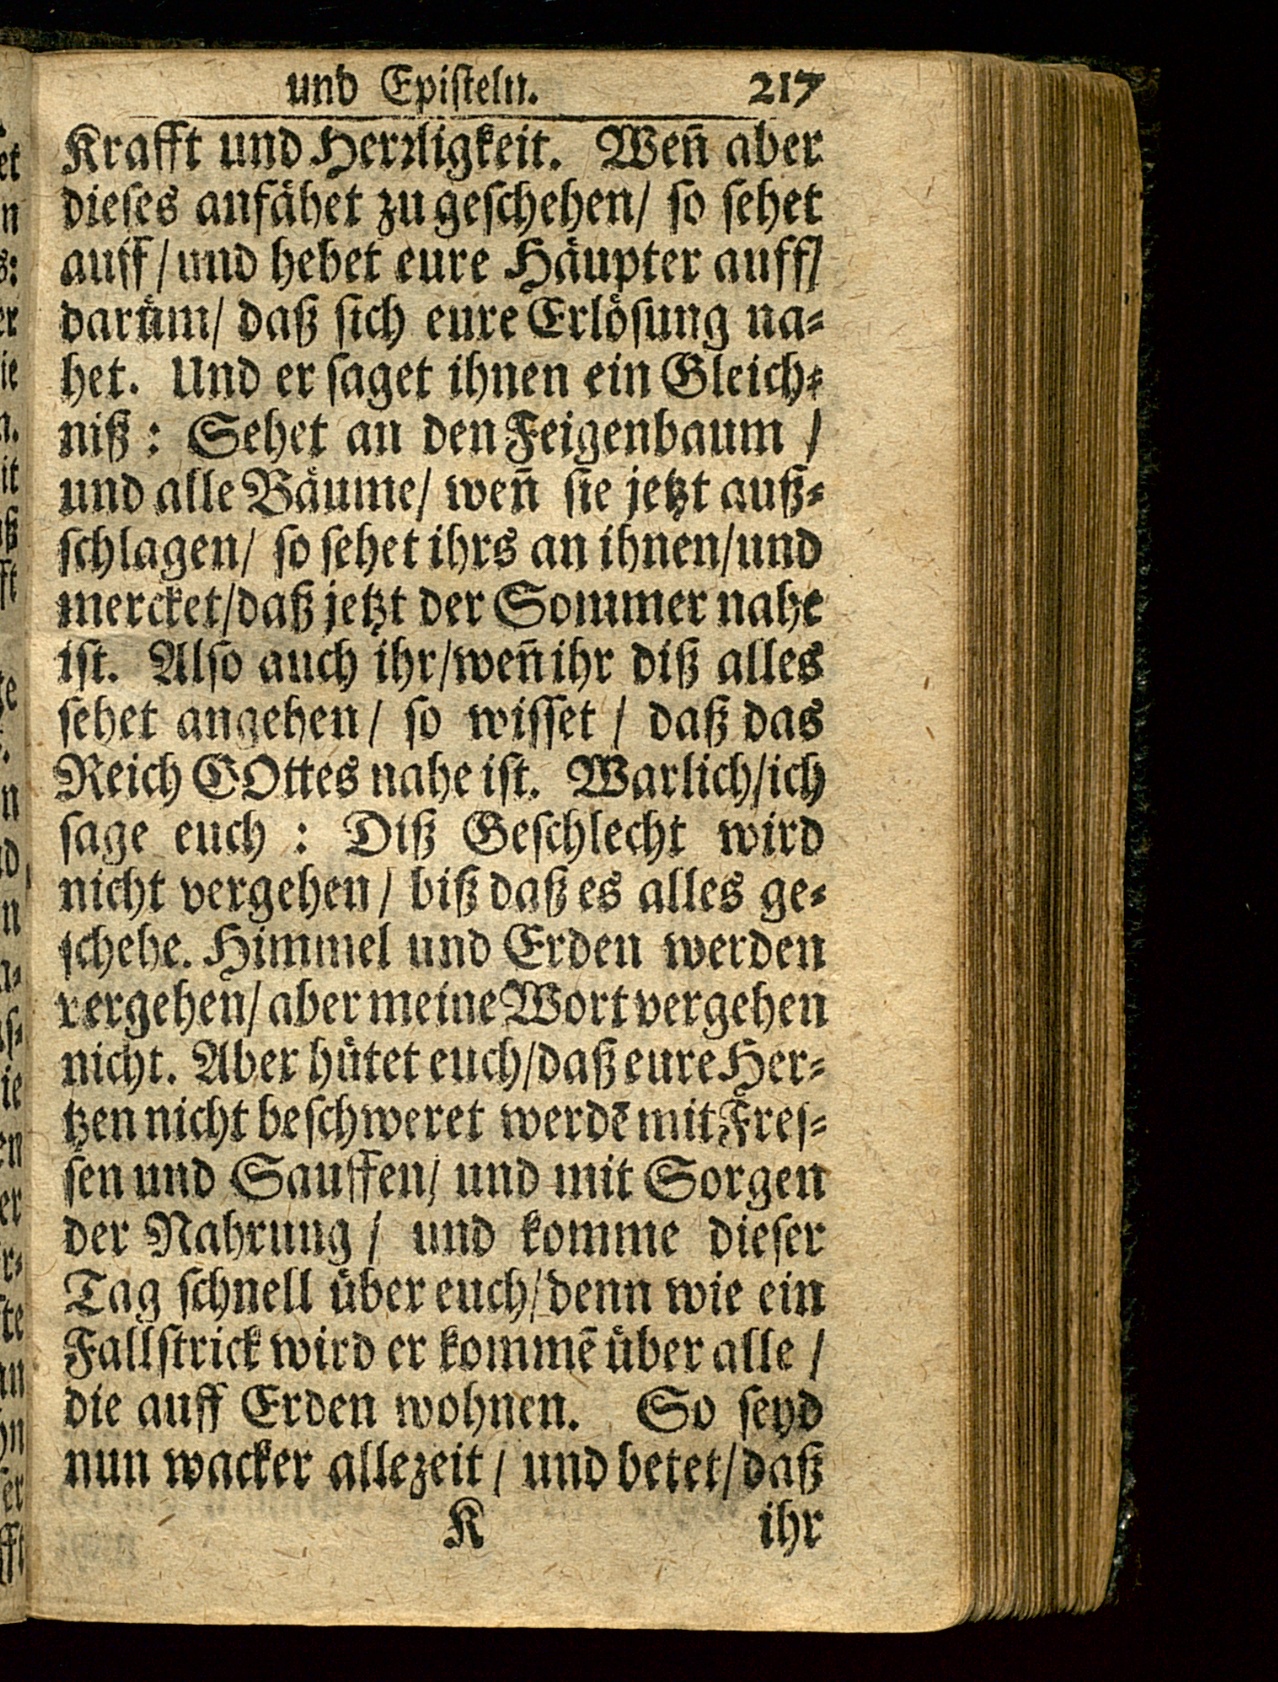 und Epiſteln. 217
Krafft und Herꝛligkeit. Wen̄ aber
dieſes anfaͤhet zu geſchehen/ ſo ſehet
auff/und hebet eure Haͤupter auff/
daruͤm/ daß ſich eure Erloͤſung na⸗
het. Und er ſaget ihnen ein Gleich⸗
niß : Sehet an den Feigenbaum /
und alle Baͤume/ wen̄ ſie jetzt auß⸗
ſchlagen/ ſo ſehet ihrs an ihnen/und
mercket/daß jetzt der Sommer nahe
iſt. Alſo auch ihr/wen̄ ihr diß alles
ſehet angehen/ ſo wiſſet / daß das
Reich GOttes nahe iſt. Warlich/ich
ſage euch : Diß Geſchlecht wird
nicht vergehen/ biß daß es alles ge⸗
ſchehe. Himmel und Erden werden
vergehen/ aber meine Wort vergehen
nicht. Aber huͤtet euch/daß eure Her⸗
tzen nicht beſchweret werdē mit Freſ⸗
ſen und Sauffen/ und mit Sorgen
der Nahrung / und komme dieſer
Tag ſchnell uͤber euch/denn wie ein
Fallſtrick wird er kommē uͤber alle /
die auff Erden wohnen. So ſeyd
nun wacker allezeit / und betet/daß
K ihr